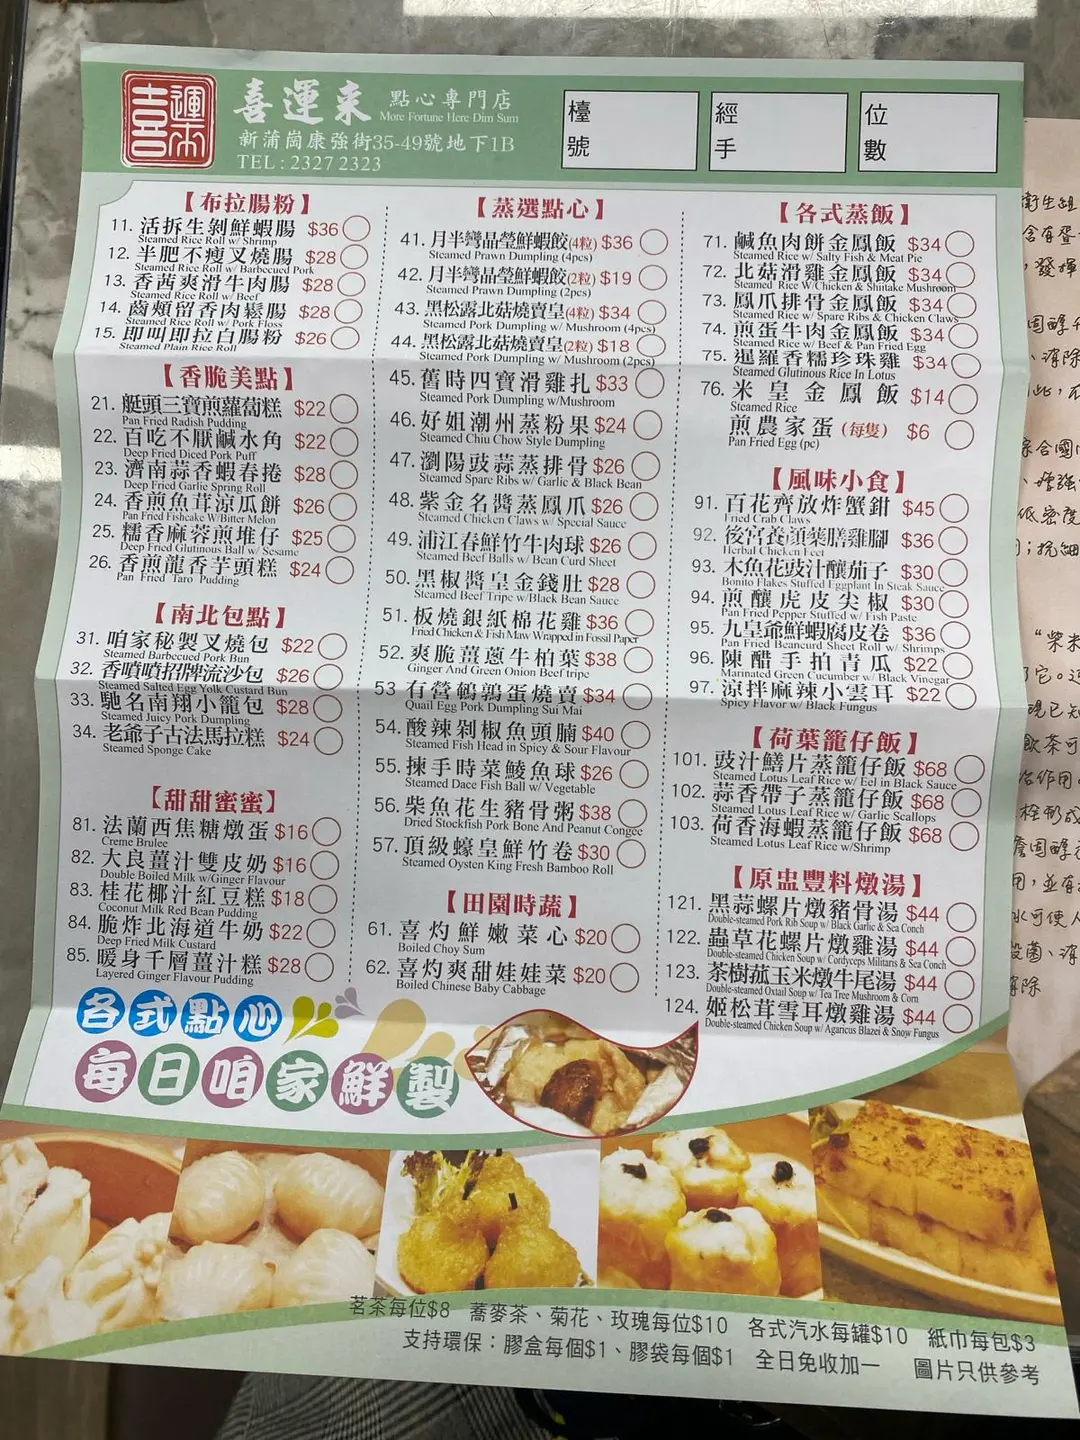 喜運來
喜運來 點心專門店
More Fortune Here Dim Sum
新蒲崗康強街35-49號地下1B
TEL : 2327 2323
檯號
經手
位數
【布拉腸粉】
11. 活拆生剝鮮蝦腸 $36
Steamed Rice Roll w/ Shrimp
12. 半肥不瘦叉燒腸 $28
Steamed Rice Roll w/ Barbecued Pork
13. 香茜爽滑牛肉腸 $28
Steamed Rice Roll w/ Beef
14. 齒頰留香肉鬆腸 $28
Steamed Rice Roll w/ Pork Floss
15. 即叫即拉白腸粉 $26
Steamed Plain Rice Roll
【香脆美點】
21. 艇頭三寶煎蘿蔔糕 $22
Pan Fried Radish Pudding
22. 百吃不厭鹹水角 $22
Deep Fried Diced Pork Puff
23. 濟南蒜香蝦春捲 $28
Deep Fried Garlic Spring Roll
24. 香煎魚茸涼瓜餅 $26
Pan Fried Fishcake W/Bitter Melon
25. 糯香麻蓉煎堆仔 $25
Deep Fried Glutinous Ball w/ Sesame
26. 香煎龍香芋頭糕 $24
Pan Fried Taro Pudding
【南北包點】
31. 咱家秘製叉燒包 $22
Steamed Barbecued Pork Bun
32. 香噴噴招牌流沙包 $26
Steamed Salted Egg Yolk Custard Bun
33. 馳名南翔小籠包 $28
Steamed Juicy Pork Dumpling
34. 老爺子古法馬拉糕 $24
Steamed Sponge Cake
【甜甜蜜蜜】
81. 法蘭西焦糖燉蛋 $16
Creme Brulee
82. 大良薑汁雙皮奶 $16
Double Boiled Milk w/Ginger Flavour
83. 桂花椰汁紅豆糕 $18
Coconut Milk Red Bean Pudding
84. 脆炸北海道牛奶 $22
Deep Fried Milk Custard
85. 暖身千層薑汁糕 $28
Layered Ginger Flavour Pudding
【蒸選點心】
41. 月半彎晶瑩鮮蝦餃(4粒) $36
Steamed Prawn Dumpling (4pcs)
42. 月半彎晶瑩鮮蝦餃(2粒) $19
Steamed Prawn Dumpling (2pcs)
43. 黑松露北菇燒賣皇(4粒) $34
Steamed Pork Dumpling w/ Mushroom (4pcs)
44. 黑松露北菇燒賣皇(2粒) $18
Steamed Pork Dumpling w/ Mushroom (2pcs)
45. 舊時四寶滑雞扎 $33
Steamed Pork Dumpling w/Mushroom
46. 好姐潮州蒸粉果 $24
Steamed Chiu Chow Style Dumpling
47. 瀏陽豉蒜蒸排骨 $26
Steamed Spare Ribs w/ Garlic & Black Bean
48. 紫金名醬蒸鳳爪 $26
Steamed Chicken Claws w/ Special Sauce
49. 浦江春鮮竹牛肉球 $26
Steamed Beef Balls w/ Bean Curd Sheet
50. 黑椒醬皇金錢肚 $28
Steamed Beef Tripe w/Black Bean Sauce
51. 板燒銀紙棉花雞 $36
Fried Chicken & Fish Maw Wrapped in Fossil Paper
52. 爽脆薑蔥牛柏葉 $38
Ginger And Green Onion Beef tripe
53 有營鵪鶉蛋燒賣 $34
Quail Egg Pork Dumpling Sui Mai
54. 酸辣剁椒魚頭腩 $40
Steamed Fish Head in Spicy & Sour Flavour
55. 揀手時菜鯪魚球 $26
Steamed Dace Fish Ball w/ Vegetable
56. 柴魚花生豬骨粥 $38
Dried Stockfish Pork Bone And Peanut Congee
57. 頂級蠔皇鮮竹卷 $30
Steamed Oysten King Fresh Bamboo Roll
【田園時蔬】
61. 喜灼鮮嫩菜心 $20
Boiled Choy Sum
62. 喜灼爽甜娃娃菜 $20
Boiled Chinese Baby Cabbage
【各式蒸飯】
71. 鹹魚肉餅金鳳飯 $34
Steamed Rice w/ Salty Fish & Meat Pie
72. 北菇滑雞金鳳飯 $34
Steamed Rice W/Chicken & Shiitake Mushroom
73. 鳳爪排骨金鳳飯 $34
Steamed Rice w/ Spare Ribs & Chicken Claws
74. 煎蛋牛肉金鳳飯 $34
Steamed Rice w/ Beef & Pan Fried Egg
75. 暹羅香糯珍珠雞 $34
Steamed Glutinous Rice In Lotus
76. 米皇金鳳飯 $14
Steamed Rice
煎農家蛋(每隻) $6
Pan Fried Egg (pc)
【風味小食】
91. 百花齊放炸蟹鉗 $45
Fried Crab Claws
92. 後宮養顏藥膳雞腳 $36
Herbal Chicken Feet
93. 木魚花豉汁釀茄子 $30
Bonito Flakes Stuffed Eggplant In Steak Sauce
94. 煎釀虎皮尖椒 $30
Pan Fried Pepper Stuffed w/ Fish Paste
95. 九皇爺鮮蝦腐皮卷 $36
Pan Fried Beancurd Sheet Roll w/ Shrimps
96. 陳醋手拍青瓜 $22
Marinated Green Cucumber w/ Black Vinegar
97. 涼拌麻辣小雲耳 $22
Spicy Flavor w/ Black Fungus
【荷葉籠仔飯】
101. 豉汁鱔片蒸籠仔飯 $68
Steamed Lotus Leaf Rice w/ Eel in Black Sauce
102. 蒜香帶子蒸籠仔飯 $68
Steamed Lotus Leaf Rice w/ Garlic Scallops
103. 荷香海蝦蒸籠仔飯 $68
Steamed Lotus Leaf Rice w/Shrimp
【原盅豐料燉湯】
121. 黑蒜螺片燉豬骨湯 $44
Double-steamed Pork Rib Soup w/ Black Garlic & Sea Conch
122. 蟲草花螺片燉雞湯 $44
Double-steamed Chicken Soup w/ Cordyceps Militaris & Sea Conch
123. 茶樹菰玉米燉牛尾湯 $44
Double-steamed Oxtail Soup w/ Tea Tree Mushroom & Corn
124. 姬松茸雪耳燉雞湯 $44
Double-steamed Chicken Soup w/ Agaricus Blazei & Snow Fungus
各式點心
每日咱家鮮製
茗茶每位$8 蕎麥茶、菊花、玫瑰每位$10 各式汽水每罐$10 紙巾每包$3
支持環保：膠盒每個$1、膠袋每個$1 全日免收加一 圖片只供參考